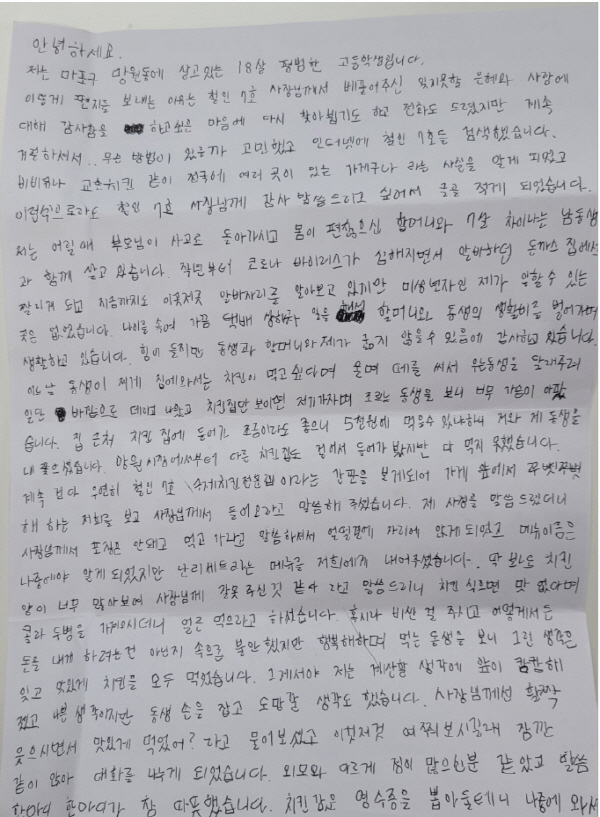 안녕하세요.
저는 마포구 망원동에 살고있는 18살 평범한 고등학생입니다.
이렇게 편지를 보내는 이유는 철인 7호 사장님께서 베풀어주신 잊지못할 은혜와 사랑에
대해 감사함을 하고싶은 마음에 다시 찾아뵙기도 하고 전화도 드렸지만 계속
거절하셔서.. 무슨 방법이 있을까 고민했고 인터넷에 철인 7호를 검색했습니다.
비비큐나 교촌치킨 같이 전국에 여러 곳이 있는 가게구나 라는 사실을 알게 되었고
이런식으로라도 철인 7호 사장님께 감사 말씀드리고 싶어서 글을 적게 되었습니다.
저는 어릴때 부모님이 사고로 돌아가시고 몸이 편찮으신 할머니와 7살 차이나는 남동생
과 함께 살고 있습니다. 작년부터 코로나 바이러스가 심해지면서 알바하던 돈까스 집에서
짤리게 되고 지금까지도 이곳저곳 알바자리를 알아보고 있지만 미성년자인 제가 일할 수 있는
곳은 없었습니다. 나이를 속여 가끔 택배 상하차 일을 해서 할머니와 동생의 생활비를 벌어가며
생활하고 있습니다. 힘이 들지만 동생과 할머니와 제가 굶지 않을수 있음에 감사하고 있습니다.
어느날 동생이 제게 집에와서는 치킨이 먹고싶다며 울며 떼를 써서 우는동생을 달래주려
일단 바깥으로 데리고 나왔고 치킨집만 보이면 저기가자며 조르는 동생을 보니 너무 가슴이 아팠
습니다. 집 근처 치킨 집에 들어가 조금이라도 좋으니 5천원에 먹을수 있냐하니 저와 제 동생을
내 쫓으셨습니다. 망원시장에서부터 다른 치킨집도 걸어서 들어가 봤지만 다 먹지 못했습니다.
계속 걷다 우연히 철인 7호 수제치킨전문점 이라는 간판을 보게되어 가게 앞에서 쭈뼛쭈뼛
해 하는 저희를 보고 사장님께서 들어오라고 말씀해 주셨습니다. 제 사정을 말씀 드렸더니
사장님께서 포장은 안되고 먹고 가라고 말씀하셔서 얼떨결에 자리에 앉게 되었고 메뉴이름은
나중에야 알게 되었지만 난리세트라는 메뉴를 저희에게 내어주셨습니다. 딱 봐도 치킨
양이 너무 많아보여 사장님께 잘못 주신것 같다 라고 말씀드리니 치킨 식으면 맛 없다며
콜라 두병을 가져오시더니 얼른 먹으라고 하셨습니다. 혹시나 비싼 걸 주시고 어떻게서든
돈을 내게 하려는건 아닌지 속으론 불안했지만 행복해하며 먹는 동생을 보니 그런 생각은
잊고 맛있게 치킨을 모두 먹었습니다. 그제서야 저는 계산할 생각에 앞이 캄캄해
졌고 나쁜 생각이지만 동생 손을 잡고 도망갈 생각도 했습니다. 사장님께선 활짝
웃으시면서 맛있게 먹었어? 라고 물어보셨고 이것저것 여쭤보시길래 잠깐
같이 앉아 대화를 나누게 되었습니다. 외모와 다르게 정이 많으신분 같았고 말씀
한마디 한마디가 참 따뜻했습니다. 치킨값은 영수증을 뽑아둘테니 나중에 와서